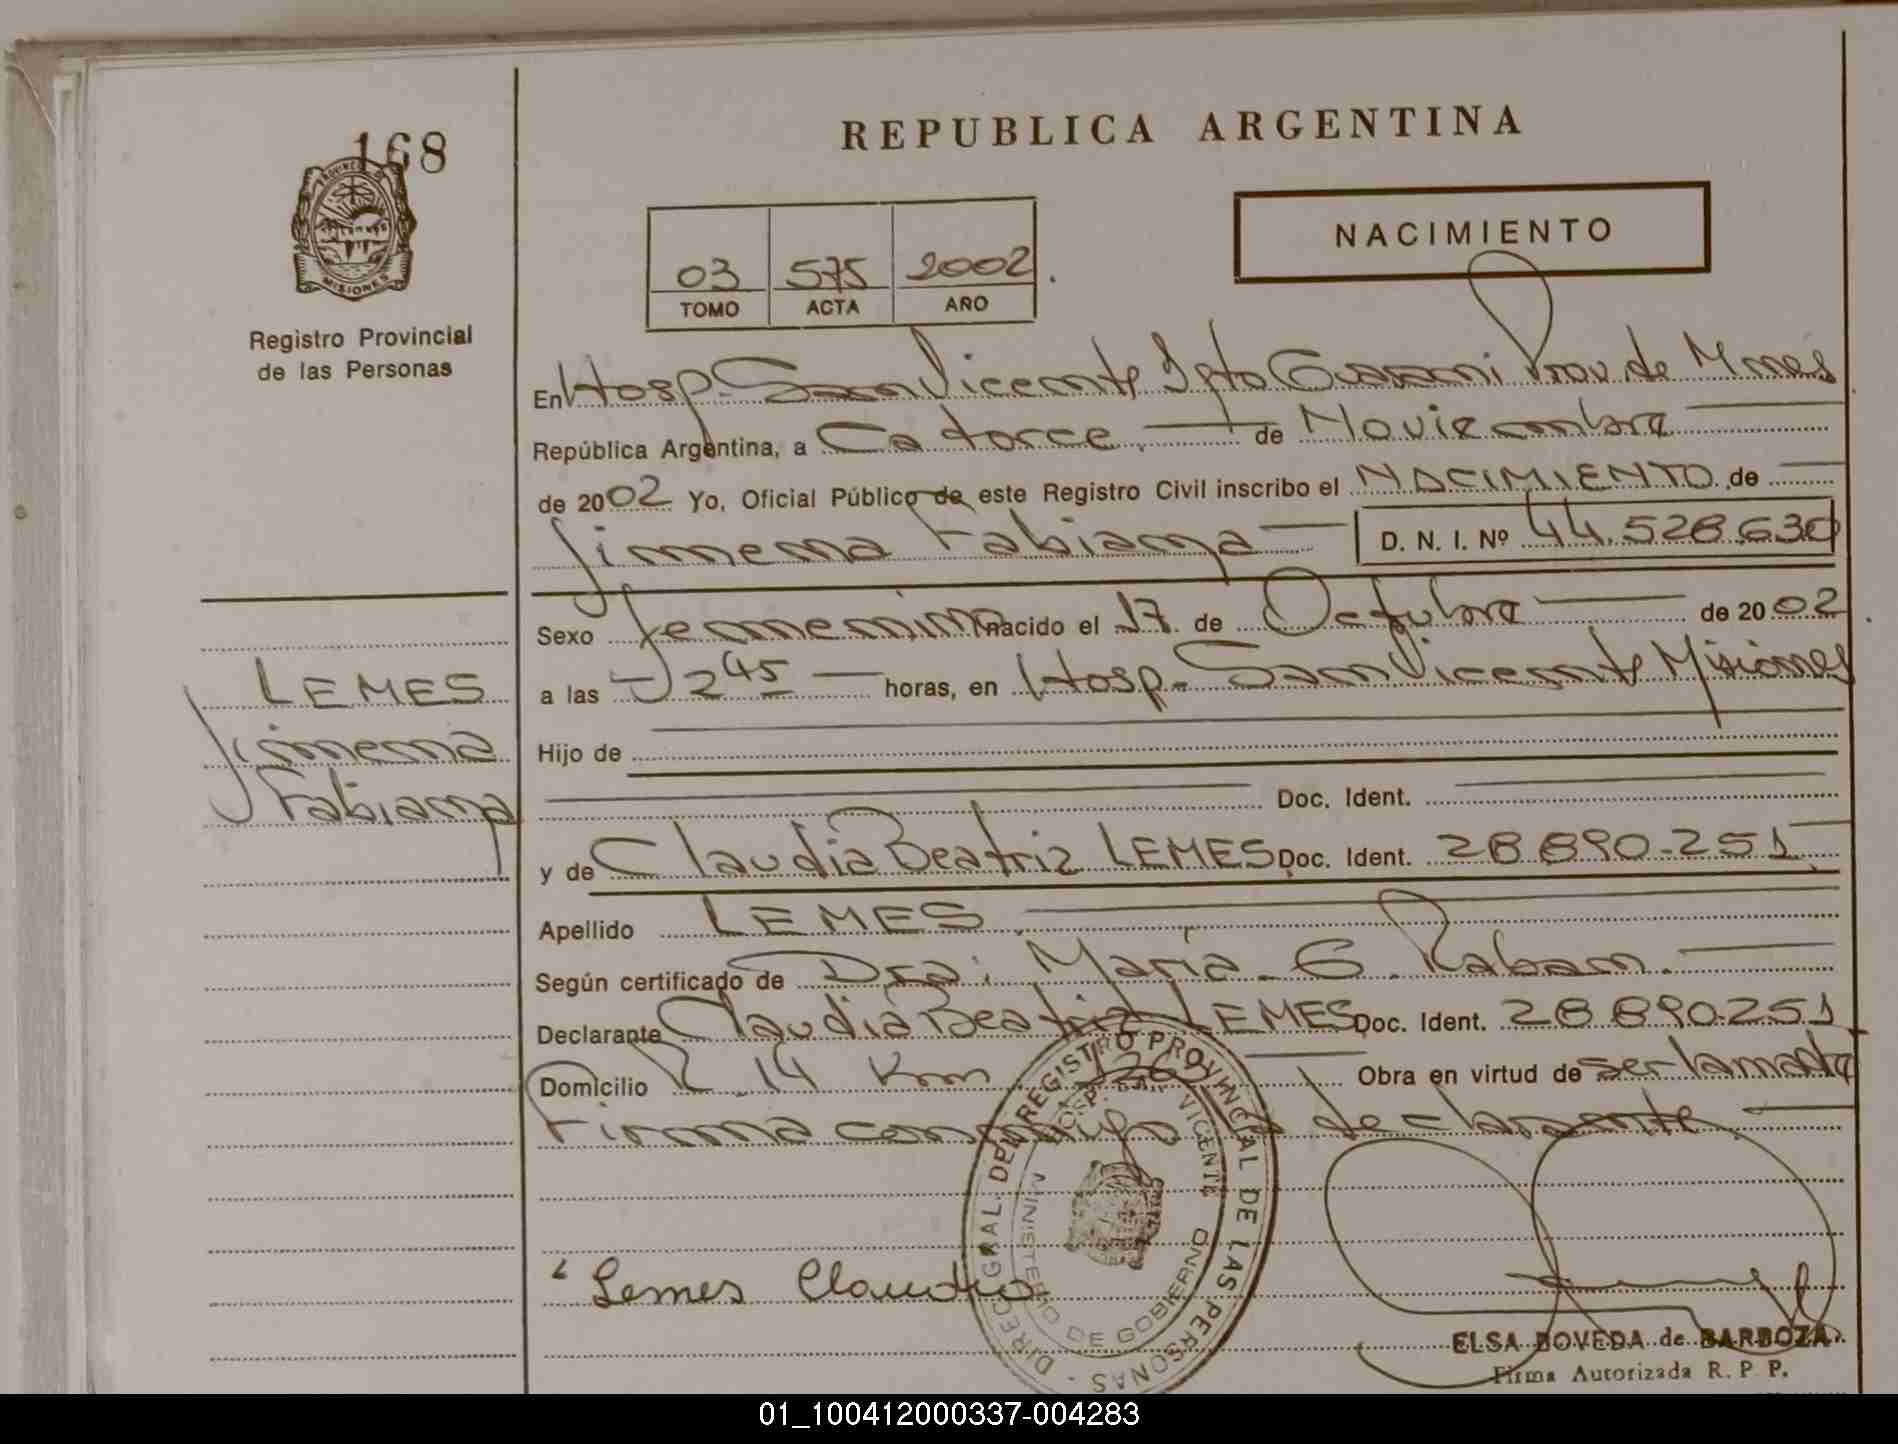 168
PROVINCIA DE
MISIONES
Registro Provincial
de las Personas
REPUBLICA ARGENTINA
NACIMIENTO
03 575 2002
TOMO ACTA AÑO
En Hosp. San Vicente Dpto Guarani Prov. de Mnes
República Argentina, a Catorce de Noviembre
de 2002 Yo, Oficial Público de este Registro Civil inscribo el NACIMIENTO de
Jimena Fabiana D. N. I. Nº 44.528.630
Sexo femenino nacido el 17 de Octubre de 2002
a las 2 45 horas, en Hosp. San Vicente Misiones
Hijo de
Doc. Ident.
y de Claudia Beatriz LEMES Doc. Ident. 28.890.251
Apellido LEMES
Según certificado de Dra: María G. Raban.
Declarante Claudia Beatriz LEMES Doc. Ident. 28.890.251
Domicilio R. 14 Km Obra en virtud de ser la madre
Firma conmigo la declarante
LEMES
Jimena
Fabiana
Lemes Claudia
DIREC. GRAL. DEL REGISTRO PROVINCIAL DE LAS PERSONAS
HOSP. SAN VICENTE
MINISTERIO DE GOBIERNO
ELSA BOVEDA de BARBOZA
Firma Autorizada R. P. P.
01_100412000337-004283